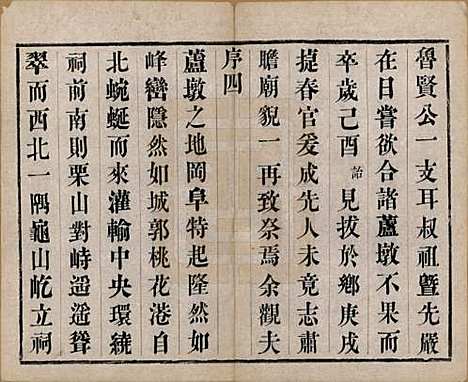 魯賢公一支耳叔祖暨先嚴
在日嘗欲合諸蘆墩不果而
卒歲己酉詒見拔於鄉庚戌
捷春官爰成先人未竟志肅
瞻廟貌一再致祭焉余觀夫
序四
蘆墩之地岡阜特起隆然如
峰巒隱然如城郭桃花港自
北蜿蜒而來灌輸中央環繞
祠前南則栗山對峙遥遥聳
翠而西北一隅龜山屹立祠